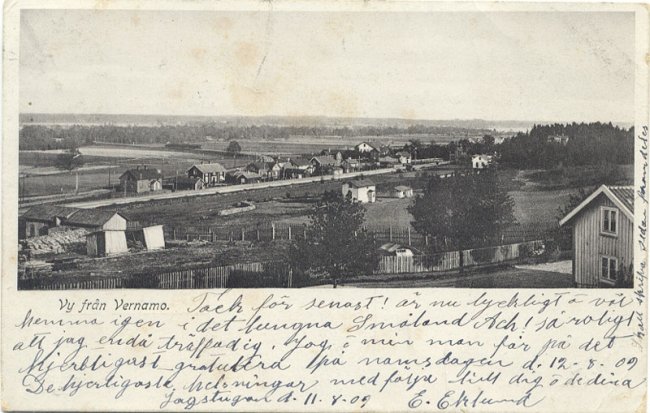 Vy från Vernamo.
Tack för senast! är nu lyckligt o väl
hemma igen i det lugna Småland Ach! så roligt
att jag ändå träffade dig. Jag, o min man får på det
hjertligast gratulera på namsdagen d. 12-8-09
De hjertligaste helsningar med följa till dig o de dina
Jagstugan d. 11-8-09 E. Eklund
skrifva sedan